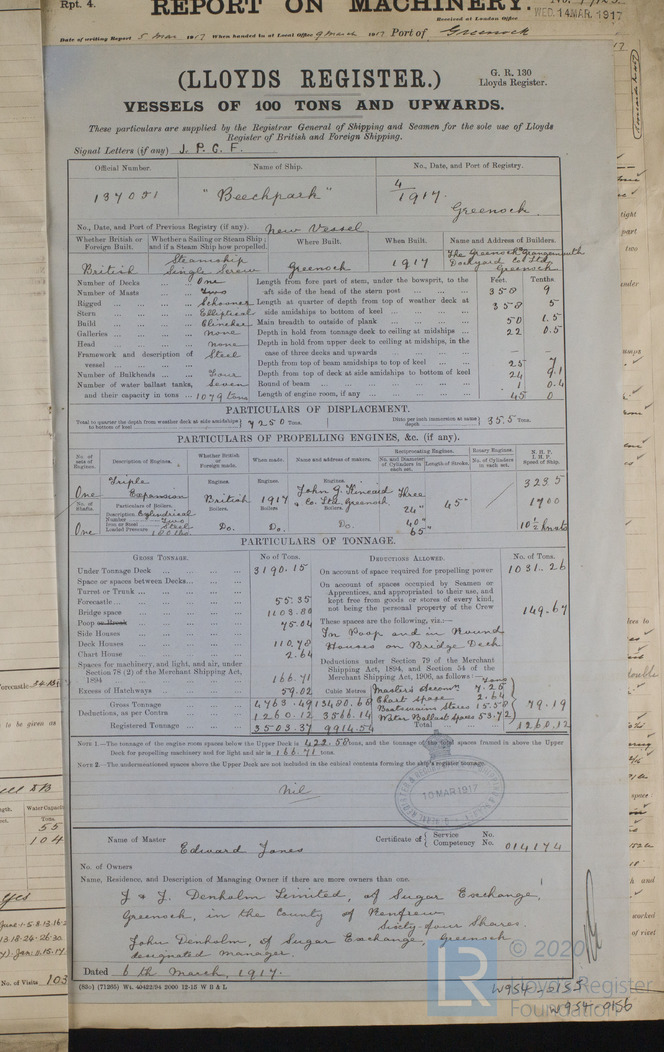 Rpt. 4.
REPORT ON MACHINERY.
Received at London Office
WED. 14 MAR. 1917
Date of writing Report 5 Mar 1917 When handed in at Local Office 9 March 1917 Port of Greenock
(LLOYDS REGISTER.)
G. R. 130
Lloyds Register.
VESSELS OF 100 TONS AND UPWARDS.
These particulars are supplied by the Registrar General of Shipping and Seamen for the sole use of Lloyds
Register of British and Foreign Shipping.
Signal Letters (if any) J. P. C. F.
Official Number. Name of Ship. No., Date, and Port of Registry.
137021 "Beechpark" 4/1917. Greenock.
No., Date, and Port of Previous Registry (if any). New Vessel
Whether British or Foreign Built. Whether a Sailing or Steam Ship; and if a Steam Ship how propelled. Where Built. When Built. Name and Address of Builders.
British Steamship Single Screw Greenock 1917 The Greenock & Grangemouth Dockyard Co. Ltd. Greenock
Feet. Tenths.
Number of Decks One Length from fore part of stem, under the bowsprit, to the aft side of the head of the stern post 358 9
Number of Masts Two
Rigged Schooner Length at quarter of depth from top of weather deck at side amidships to bottom of keel 358 5
Stern Elliptical
Build Clincher Main breadth to outside of plank 50 1.5
Galleries None Depth in hold from tonnage deck to ceiling at midships 22 0.5
Head None Depth in hold from upper deck to ceiling at midships, in the case of three decks and upwards — —
Framework and description of vessel Steel
Depth from top of beam amidships to top of keel 25 7
Number of Bulkheads Four Depth from top of deck at side amidships to bottom of keel 24 9.1
Number of water ballast tanks, Seven Round of beam 1 0.4
and their capacity in tons 1079 tons Length of engine room, if any 45 0
PARTICULARS OF DISPLACEMENT.
Total to quarter the depth from weather deck at side amidships to bottom of keel 7250 Tons. Ditto per inch immersion at same depth 35.5 Tons.
PARTICULARS OF PROPELLING ENGINES, &c. (if any).
No. of sets of Engines. Description of Engines. Whether British or Foreign made. When made. Name and address of makers. Reciprocating Engines. No. and Diameter of Cylinders in each set. Length of Stroke. Rotary Engines. No. of Cylinders in each set. N. H. P. I. H. P. Speed of Ship.
One Triple Expansion Engines. British Engines. 1917 Engines. John G. Kincaid & Co. Ltd. Greenock Three 24" 40" 65" 45" 323.5 1700 10½ knots
No. of Shafts. Particulars of Boilers. Boilers. Boilers. Boilers.
One Description Cylindrical Do. Do. Do.
Number Two
Iron or Steel Steel
Loaded Pressure 180 lbs.
PARTICULARS OF TONNAGE.
GROSS TONNAGE. No of Tons. DEDUCTIONS ALLOWED. No. of Tons.
Under Tonnage Deck 3190.15 On account of space required for propelling power 1031.26
Space or spaces between Decks
Turret or Trunk
On account of spaces occupied by Seamen or Apprentices, and appropriated to their use, and kept free from goods or stores of every kind, not being the personal property of the Crew 149.67
Forecastle 55.35
Bridge space 1103.80
Poop or Break 75.04 These spaces are the following, viz:—
Side Houses In Poop and in Round Houses on Bridge Deck
Deck Houses 110.78
Chart House 2.64
Spaces for machinery, and light, and air, under Section 78 (2) of the Merchant Shipping Act, 1894 166.71
Deductions under Section 79 of the Merchant Shipping Act, 1894, and Section 54 of the Merchant Shipping Act, 1906, as follows: Tons
Excess of Hatchways 59.02 Cubic Metres Master's Accomn. 7.25
Chart space 2.64
Gross Tonnage 4763.49 13480.68 Boatswain Stores 15.58 79.19
Deductions, as per Contra 1260.12 3566.14 Water Ballast spaces 53.72
Registered Tonnage 3503.37 9914.54 Total 1260.12
NOTE 1.—The tonnage of the engine room spaces below the Upper Deck is 422.58 tons, and the tonnage of the total spaces framed in above the Upper Deck for propelling machinery and for light and air is 166.71 tons.
NOTE 2.—The undermentioned spaces above the Upper Deck are not included in the cubical contents forming the ship's register tonnage:
Nil
10 MAR 1917
Name of Master Edward Jones Certificate of { Service No. Competency No. 014174
No. of Owners
Name, Residence, and Description of Managing Owner if there are more owners than one.
J & J. Denholm Limited, of Sugar Exchange,
Greenock, in the County of Renfrew
Sixty-four Shares.
John Denholm, of Sugar Exchange, Greenock
designated manager.
Dated 6th March, 1917.
(88c) (71265) Wt. 40422/94 2000 12-15 W B & L
W954-0155
W954-0156
© 2020
LR
Lloyd's Register
Foundation
No. of Visits 103